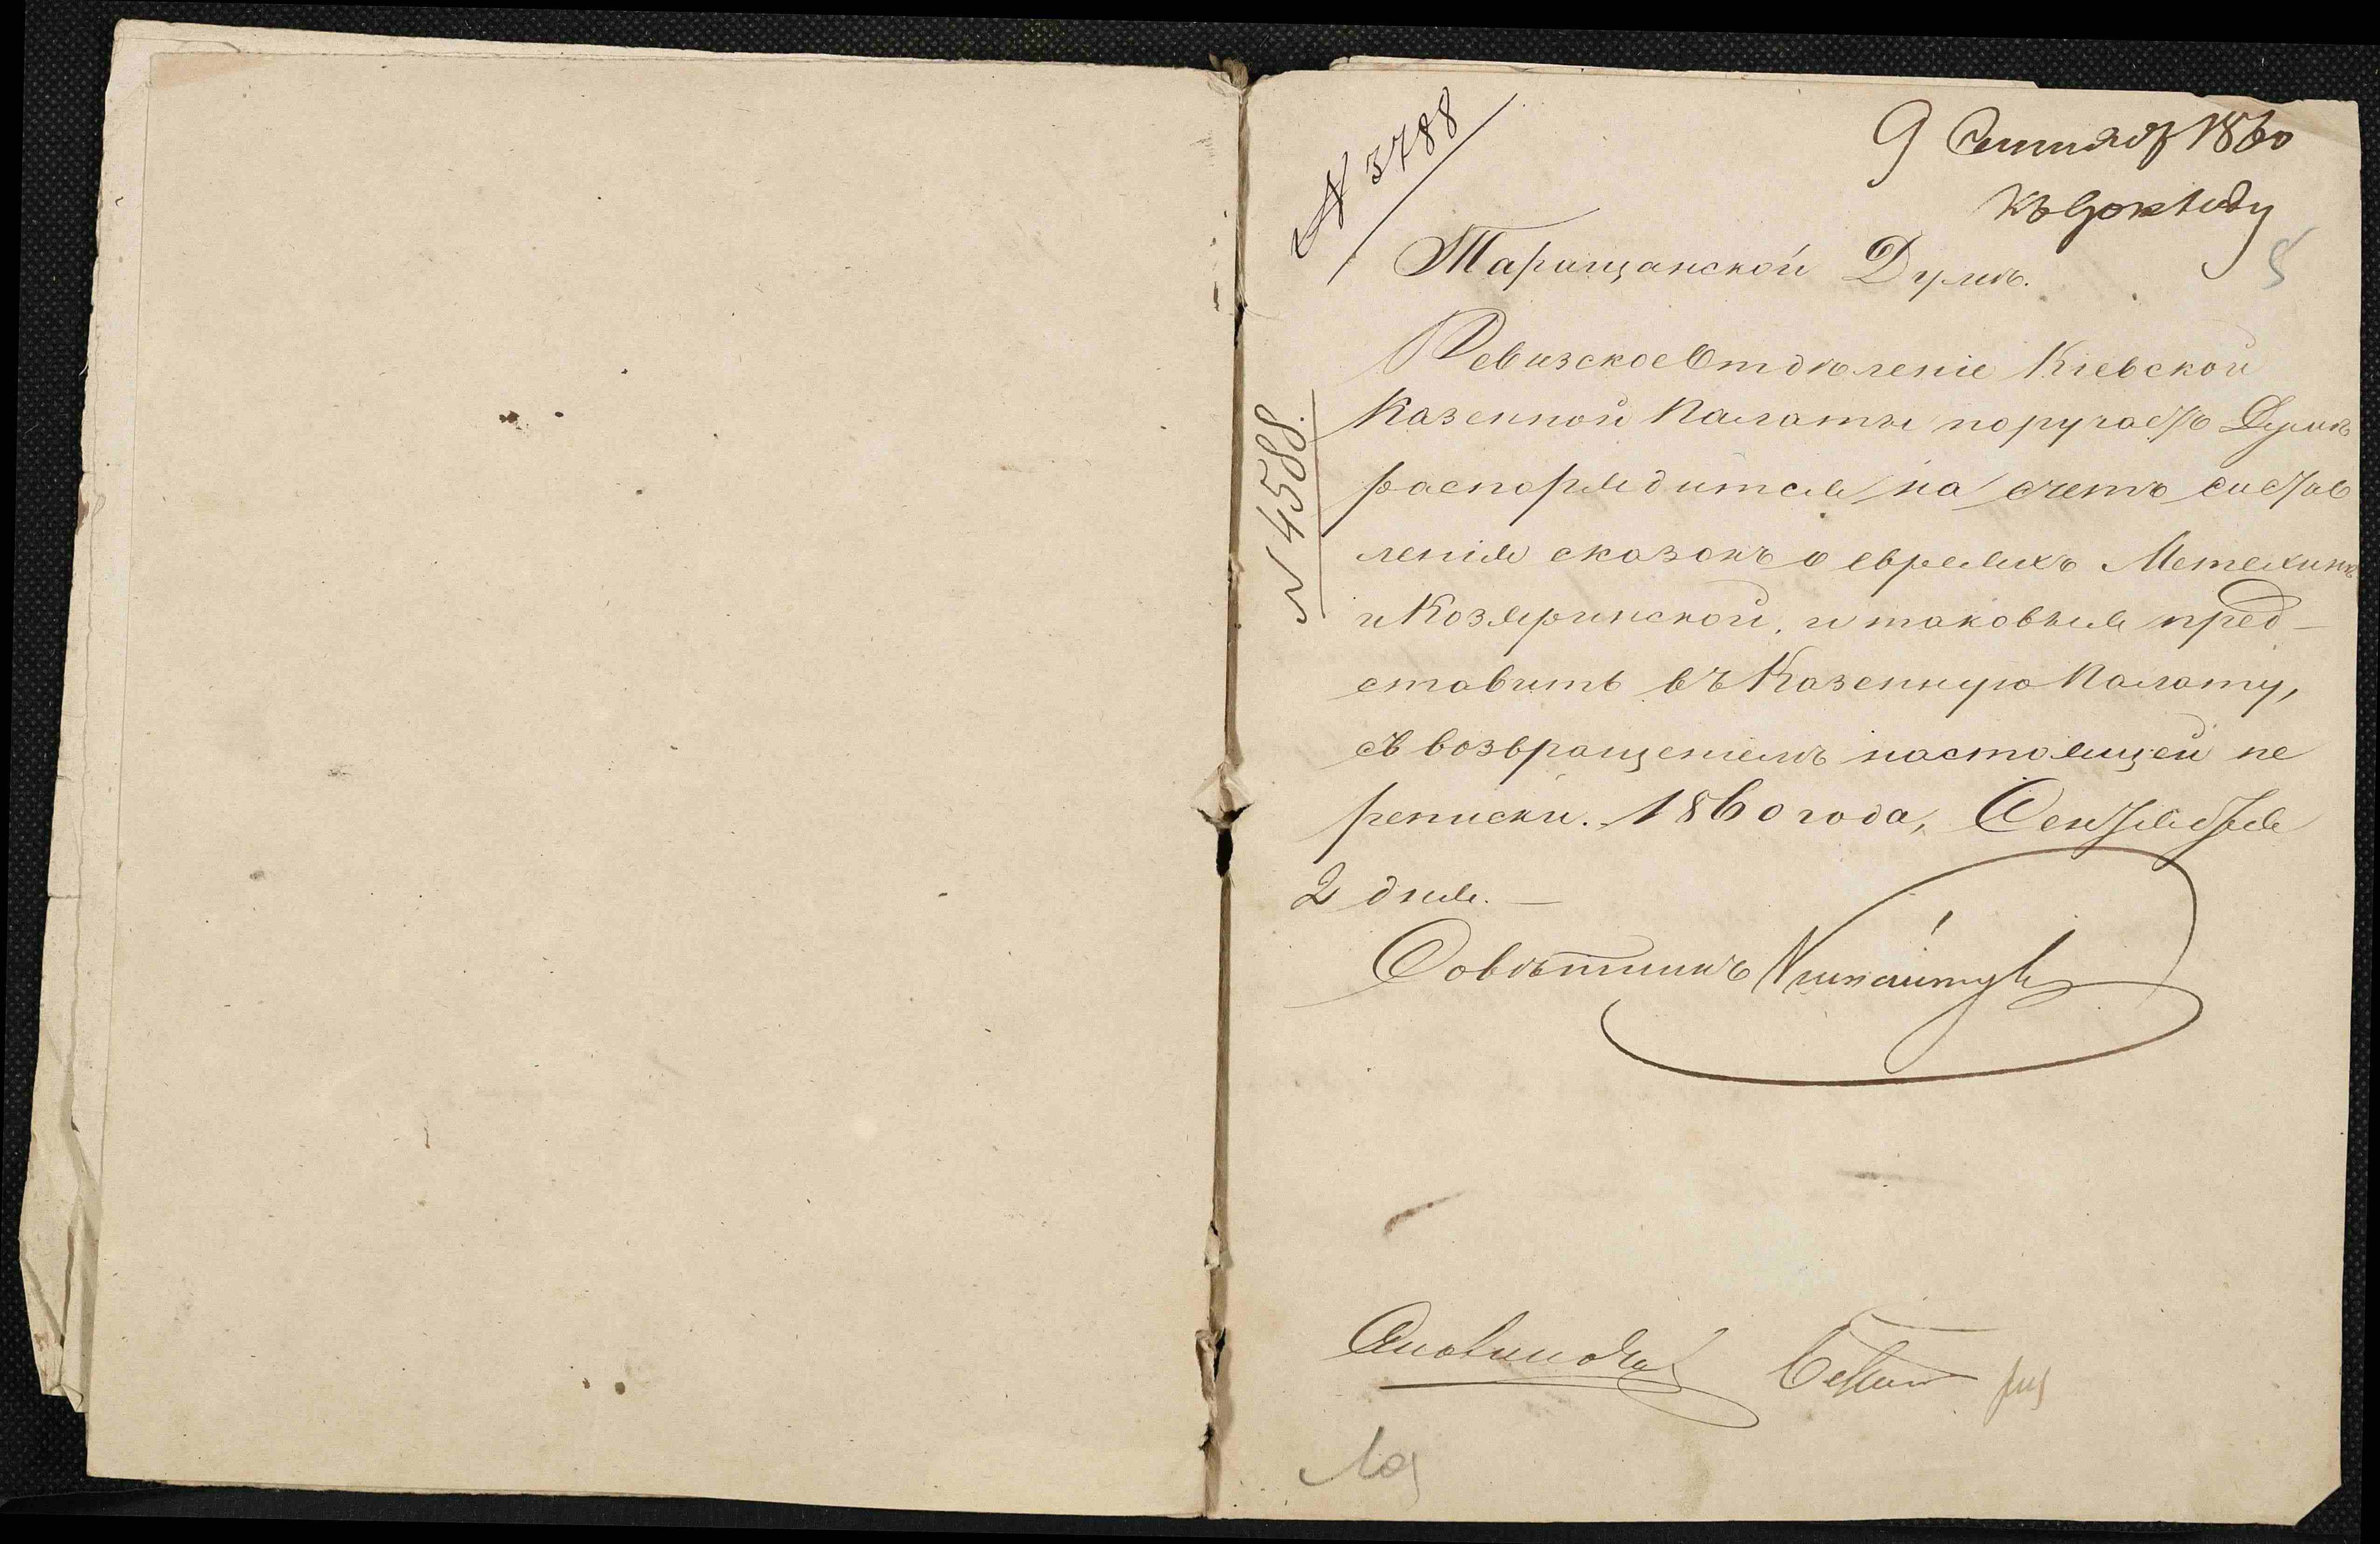 № 3788
9 Сентября 1860
къ докладу
5
Таращанской Думѣ.
Ревизское Отдѣленіе Кіевской
Казенной Палаты поручаетъ Думѣ
распорядится на счетъ состав
ленія сказокъ о евреяхъ
и Козяринской, и таковыя пред-
ставить въ Казенную Палату,
съ возвращеніемъ настоящей пе
реписки. 1860 года, Сентября
2 дня. —
Совѣтникъ
№ 4588.